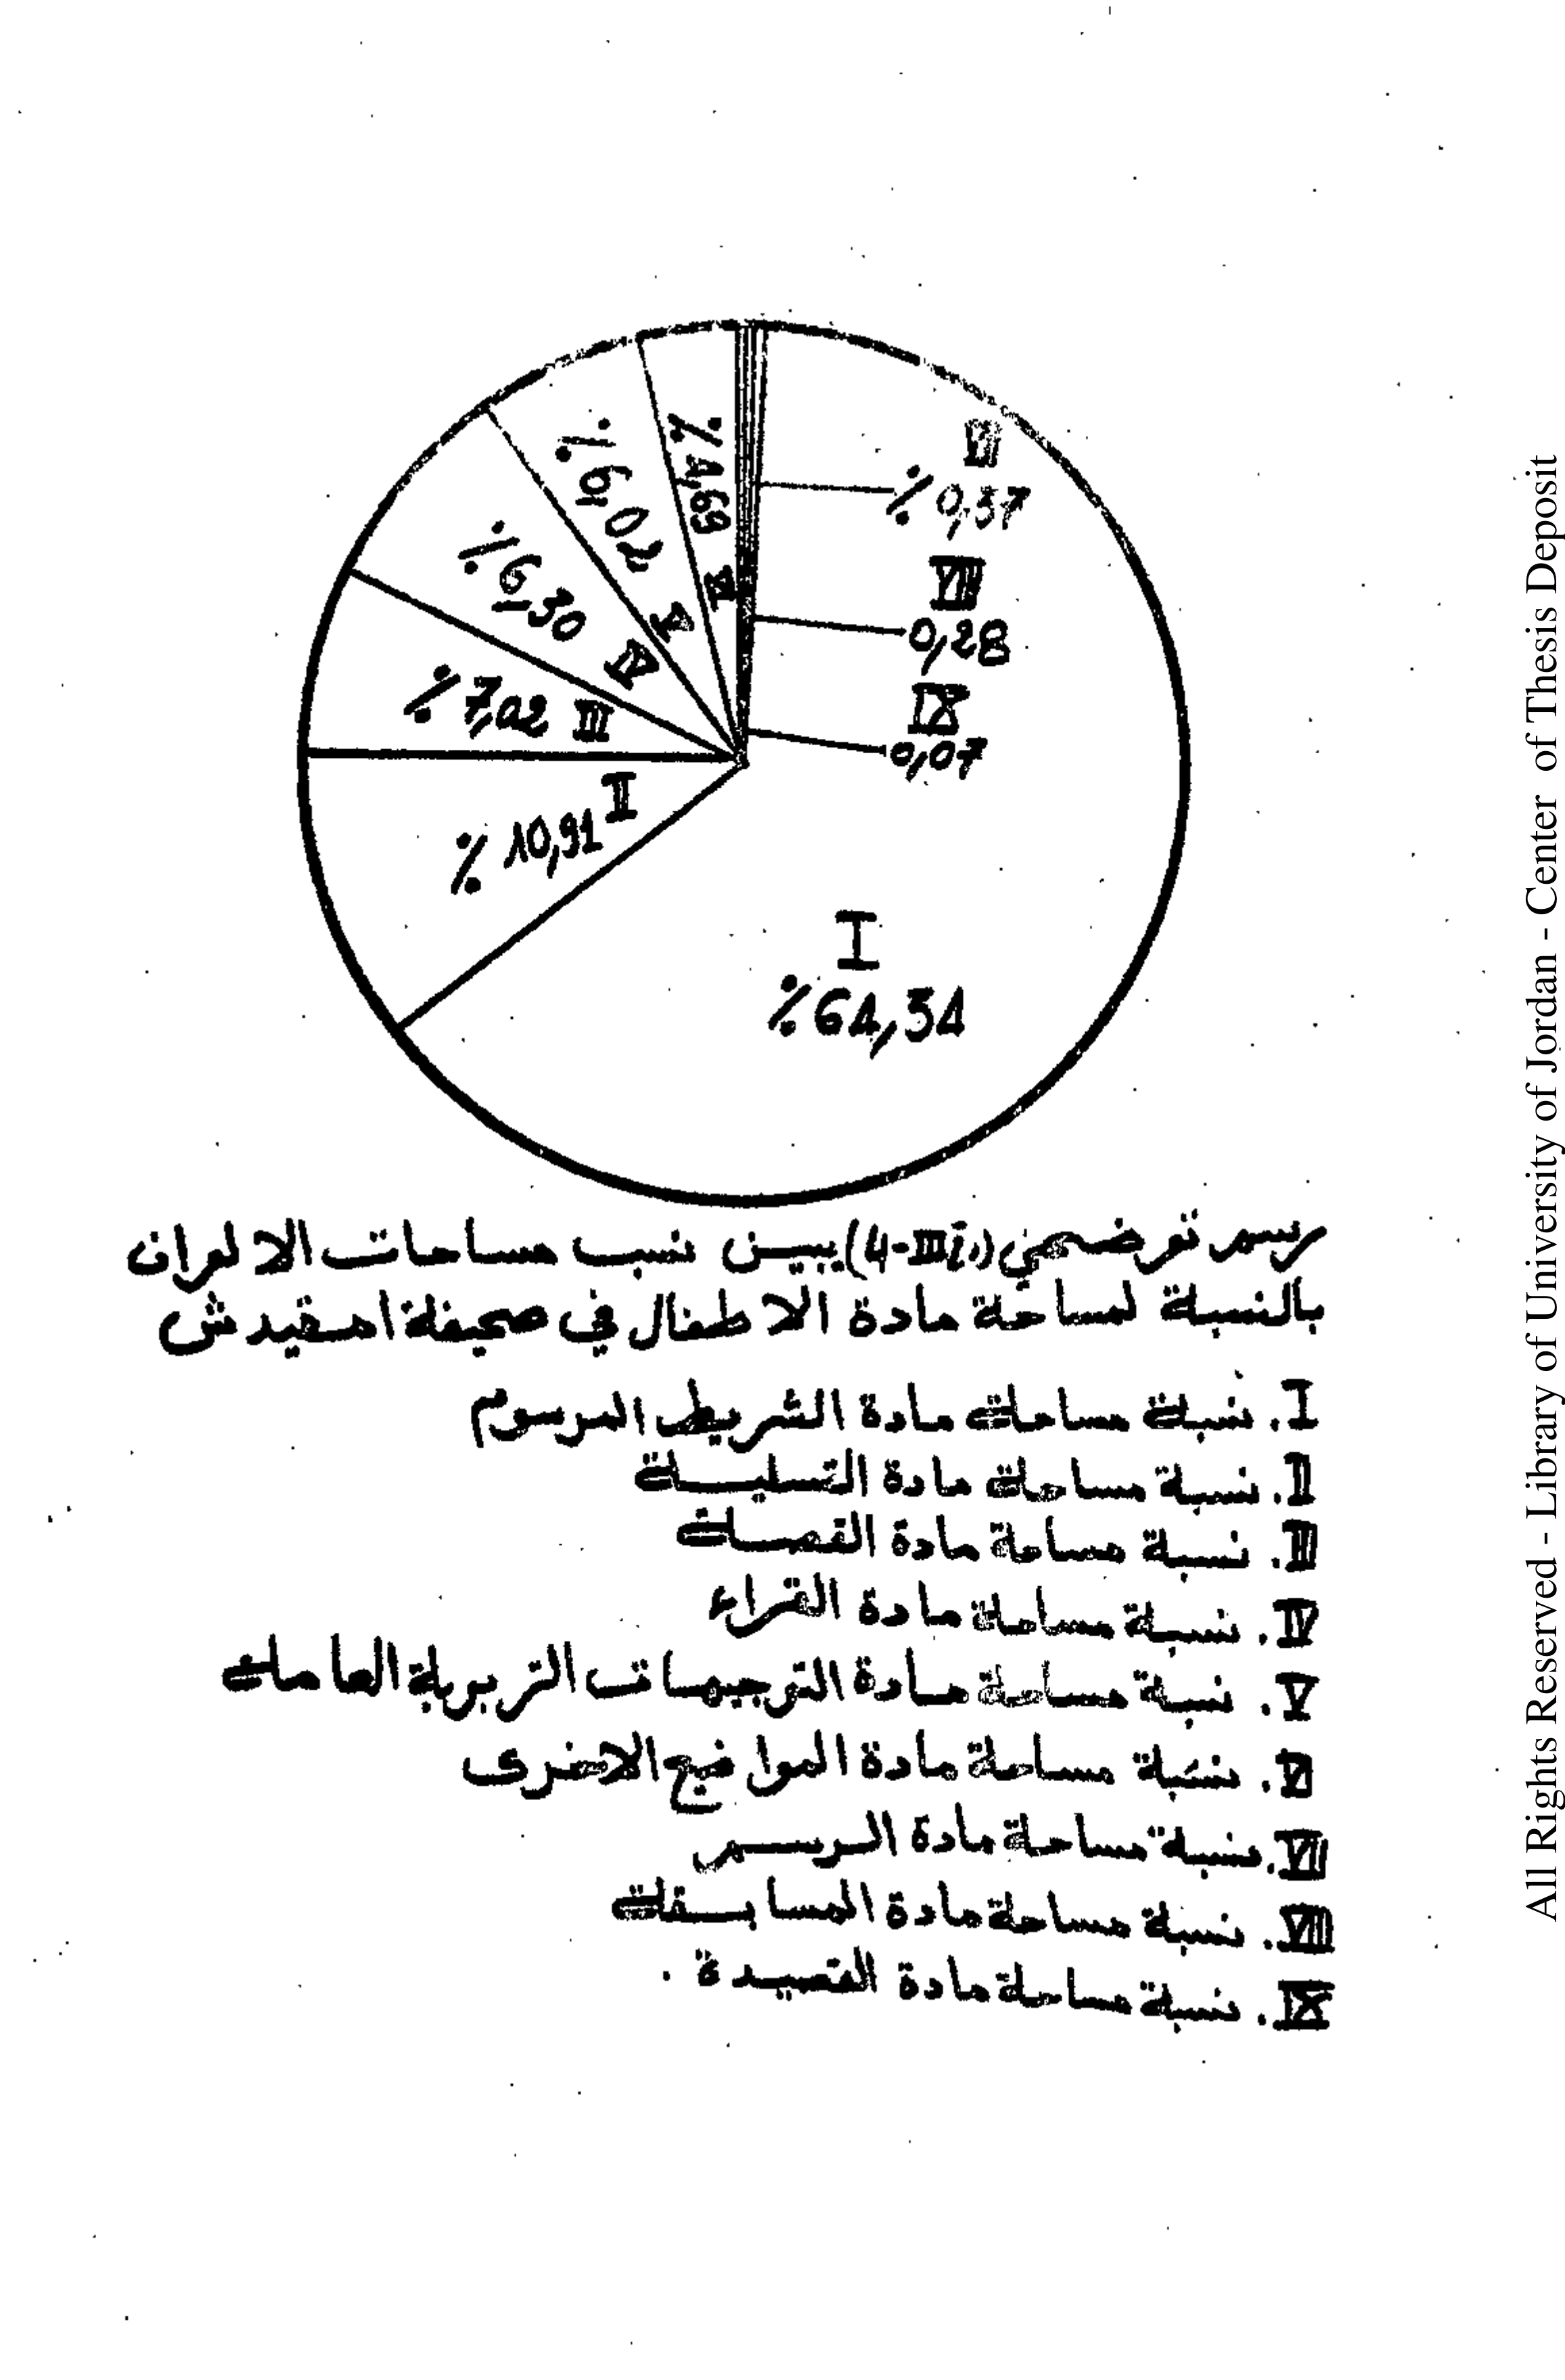 % 4,69 VI
% 6,02 V
% 6,30 IV
% 7,02 III
% 10,91 II
VII
% 0,37
VIII
0,28
IX
0,07
I
% 64,34
رسم توضيحي (4-III) يبين نسب مساحات الالوان
بالنسبة لمساحة مادة الاطفال في صحيفة
I. نسبة مساحة مادة الشريط المرسوم
II. نسبة مساحة مادة التسلية
III. نسبة مساحة مادة القصة
IV. نسبة مساحة مادة القراء
V. نسبة مساحة مادة التوجيهات التربوية العامة
VI. نسبة مساحة مادة المواضيع الاخرى
VII. نسبة مساحة مادة الرسم
VIII. نسبة مساحة مادة المسابقة
IX. نسبة مساحة مادة القصيدة .
All Rights Reserved - Library of University of Jordan - Center of Thesis Deposit